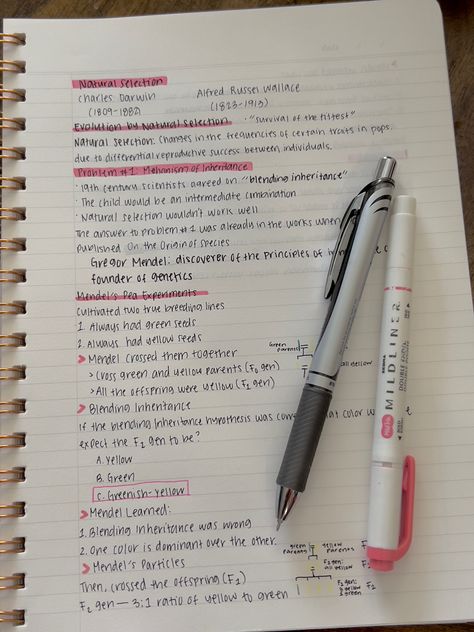 Natural Selection
Charles Darwin Alfred Russel Wallace
(1809-1882) (1823-1913)
Evolution by Natural Selection • "survival of the fittest"
Natural Selection: Changes in the frequencies of certain traits in pops.
due to differential reproductive success between individuals.
Problem #1: Mechanism of Inheritance
• 19th century scientists agreed on: "blending inheritance"
• The child would be an intermediate combination
• Natural selection wouldn't work well
The answer to problem #1 was already in the works when
published On the Origin of Species
Gregor Mendel: discoverer of the Principles of
founder of genetics
Mendel's Pea Experiments
Cultivated two true breeding lines
1. Always had green seeds
2. Always had yellow seeds
> Mendel crossed them together
> Cross green and yellow parents (F₀ gen)
> All the offspring were yellow (F₁ gen)
Green
parents
all yellow
> Blending Inheritance
If the blending inheritance hypothesis was color
expect the F₁ gen to be?
A. Yellow
B. Green
C. Greenish-yellow
> Mendel Learned:
1. Blending Inheritance was wrong
2. One color is dominant over the other.
> Mendel's Particles
Then, crossed the offspring (F₁)
F₂ gen — 3:1 ratio of yellow to green
green yellow
parents parents
F₁ gen:
all yellow
F₂ gen:
3 yellow
1 green
ZEBRA
MILDLINER
DOUBLE ENDED